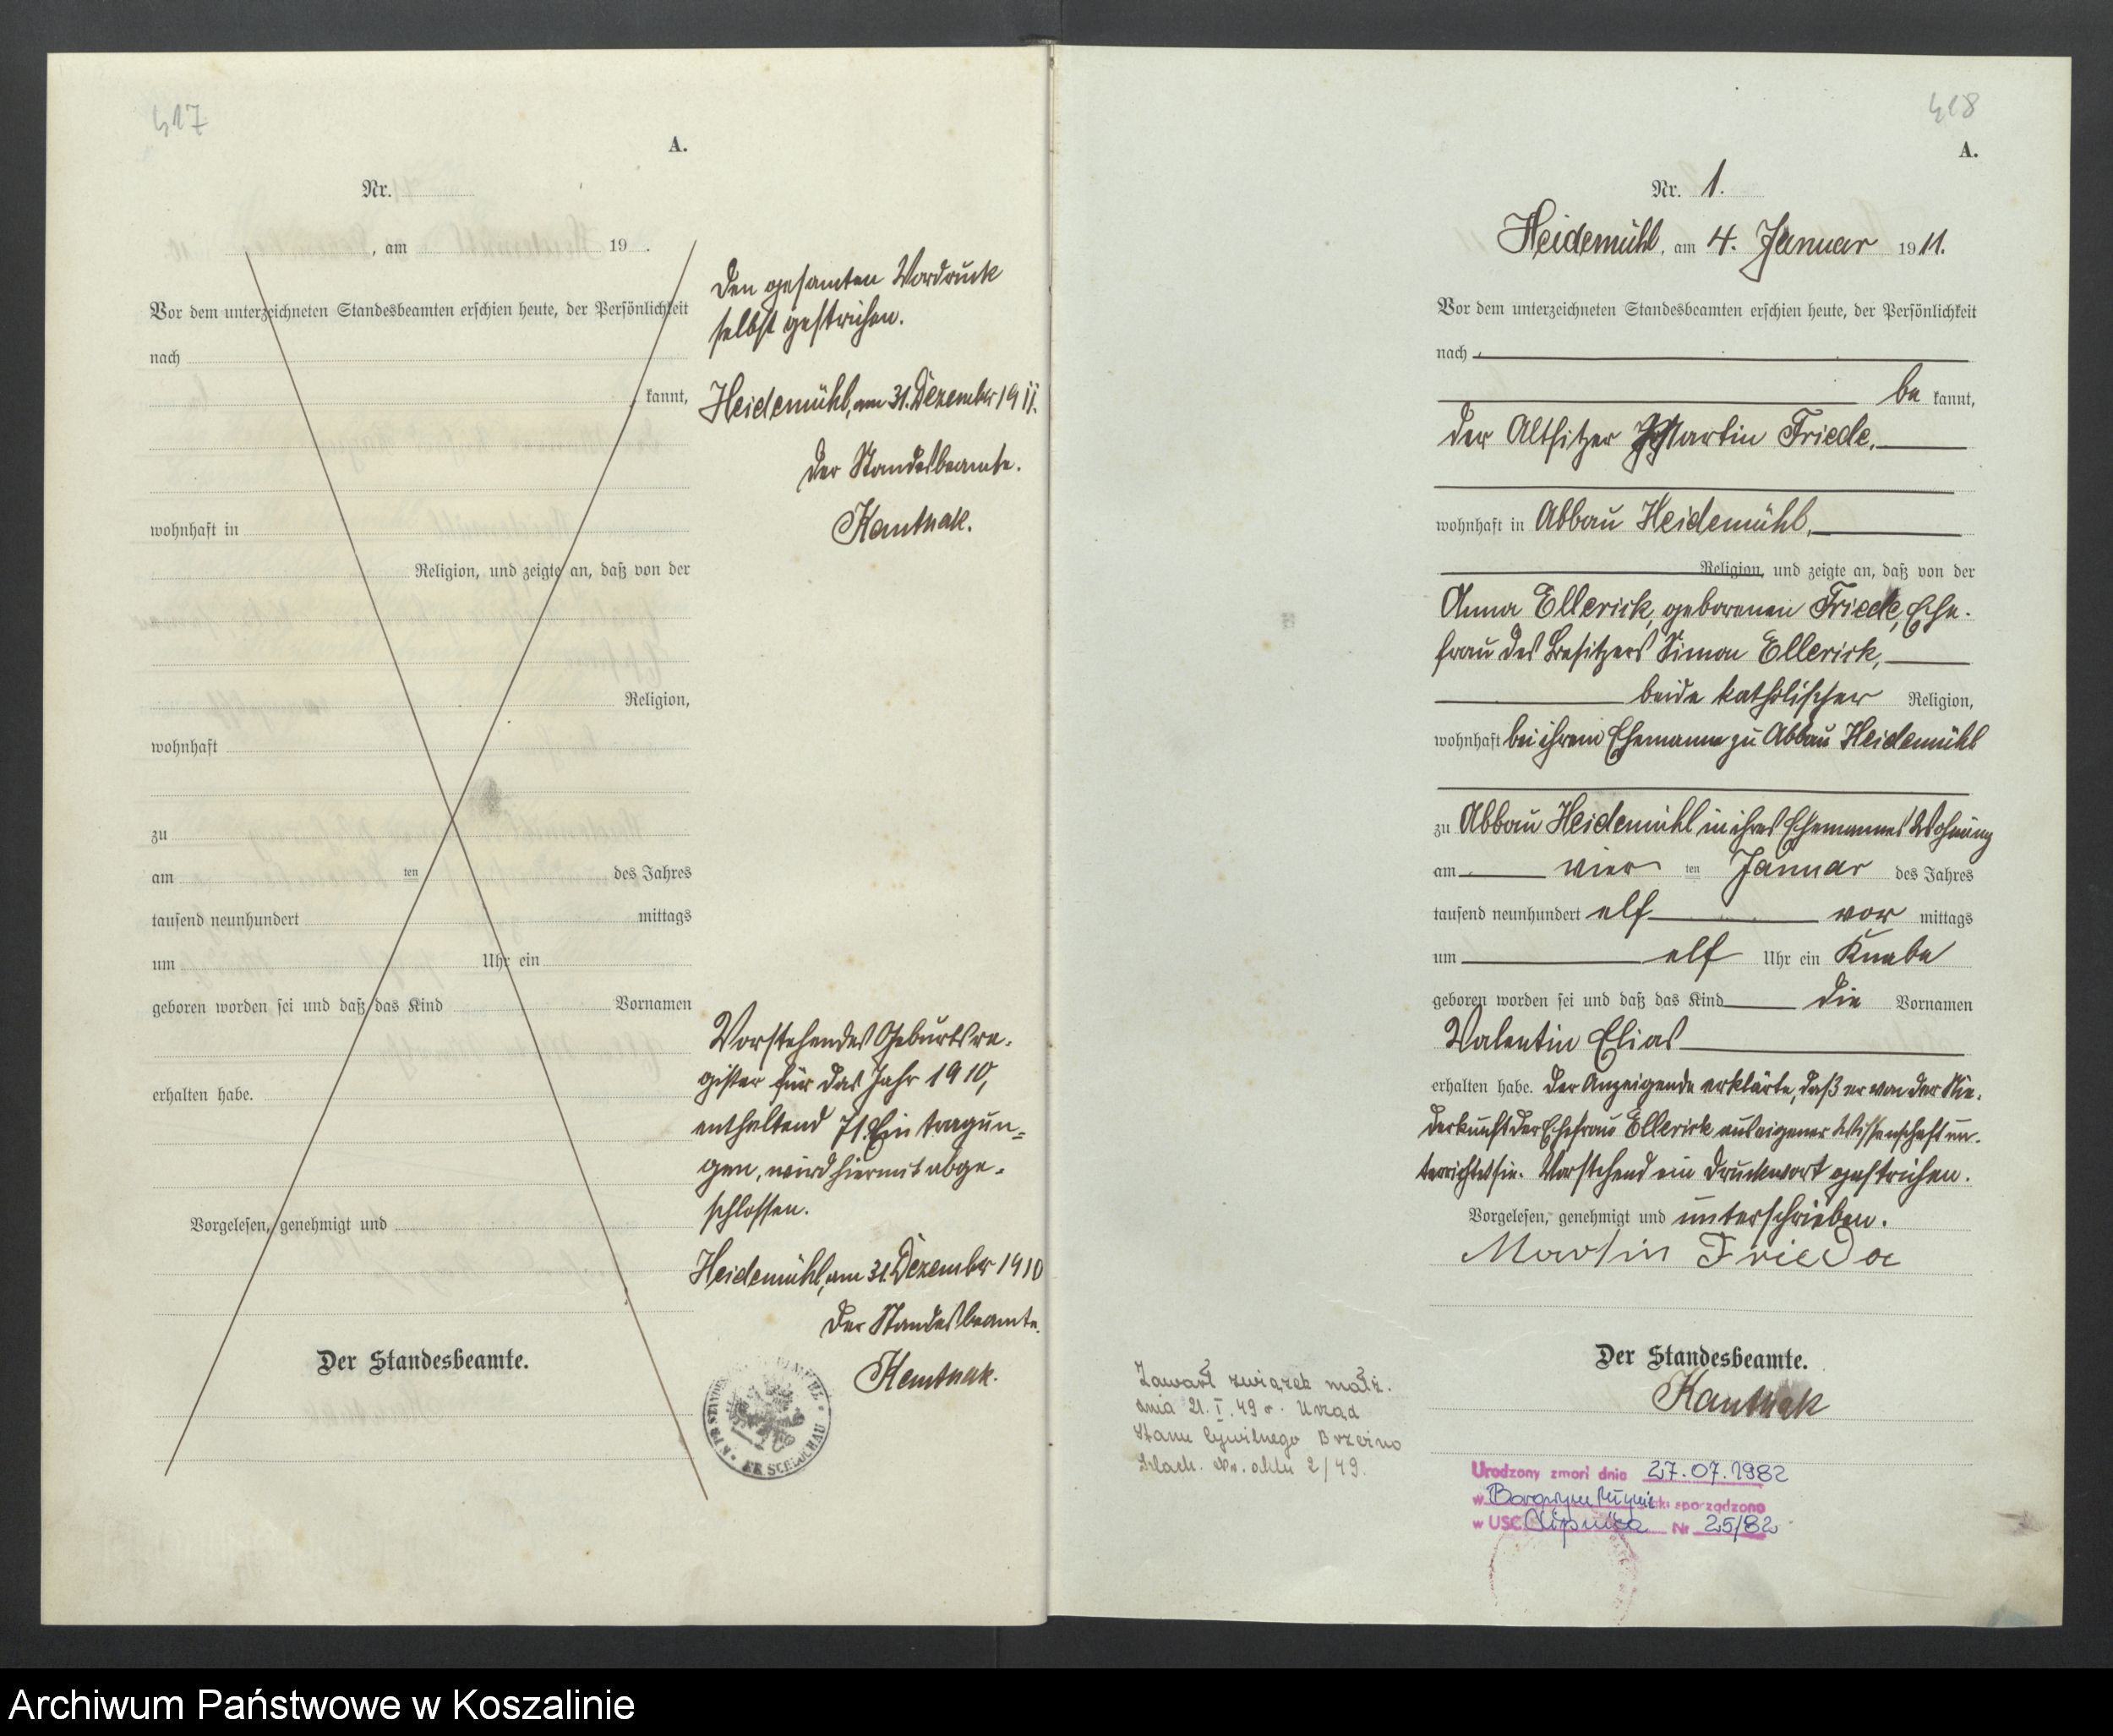 417
A.
Nr.
, am 19 .
Vor dem unterzeichneten Standesbeamten erschien heute, der Persönlichkeit
nach
kannt,
wohnhaft in
Religion, und zeigte an, daß von der
Religion,
wohnhaft
zu
am ten des Jahres
tausend neunhundert mittags
um Uhr ein
geboren worden sei und daß das Kind Vornamen
erhalten habe.
Vorgelesen, genehmigt und
Der Standesbeamte.
Den gesamten Vordruck
selbst gestrichen.
Heidemühl, am 31. Dezember 1911.
Der Standesbeamte.
Kanthak.
Vorstehendes Geburtsre-
gister für das Jahr 1910,
enthaltend 71 Eintragun=
gen, wird hiermit abge-
schlossen.
Heidemühl, am 31. Dezember 1910
Der Standesbeamte.
Kanthak.
SCHLOCHAU
418
A.
Nr. 1.
Heidemühl, am 4. Januar 1911.
Vor dem unterzeichneten Standesbeamten erschien heute, der Persönlichkeit
nach
be kannt,
der Altsitzer Martin Friede,
wohnhaft in Abbau Heidemühl,
Religion, und zeigte an, daß von der
Anna Ellerick, geborenen Friede, Ehe-
frau des Besitzers Simon Ellerick,
beide katholischer Religion,
wohnhaft bei ihrem Ehemanne zu Abbau Heidemühl
zu Abbau Heidemühl in ihres Ehemannes Wohnung
am vier ten Januar des Jahres
tausend neunhundert elf vor mittags
um elf Uhr ein Knabe
geboren worden sei und daß das Kind die Vornamen
Valentin Elias
erhalten habe. Der Anzeigende erklärte, daß er von der Nie-
derkunft der Ehefrau Ellerick aus eigener Wissenschaft un-
terrichtet sei. Vorstehend ein Druckwort gestrichen.
Vorgelesen, genehmigt und unterschrieben.
Martin Frieda
Der Standesbeamte.
Kanthak
Zawarł związek małż.
dnia 21.I.49 r. Urząd
Stanu Cywilnego Brzeźno
Szlach. Nr. aktu 2/49.
Urodzony zmarł dnia 27.07.1982
w Borowym Młynie sporządzono
w USC Lipnica Nr 25/82
Archiwum Państwowe w Koszalinie